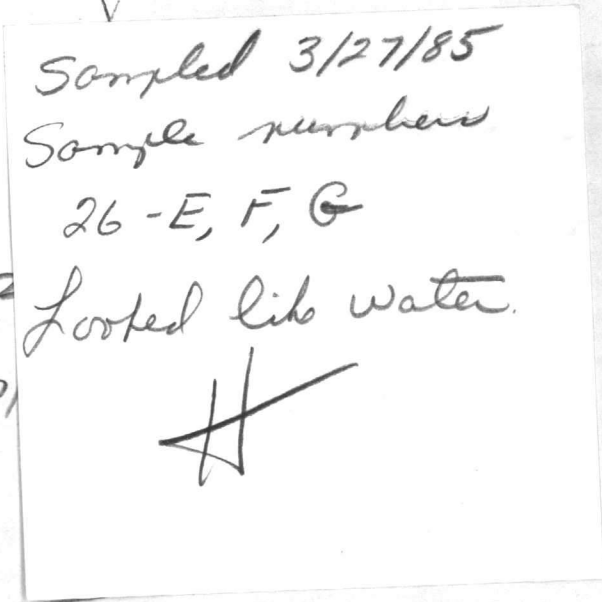 Sampled 3/27/85
Sample numbers
26 - E, F, G
Looked like water.
H